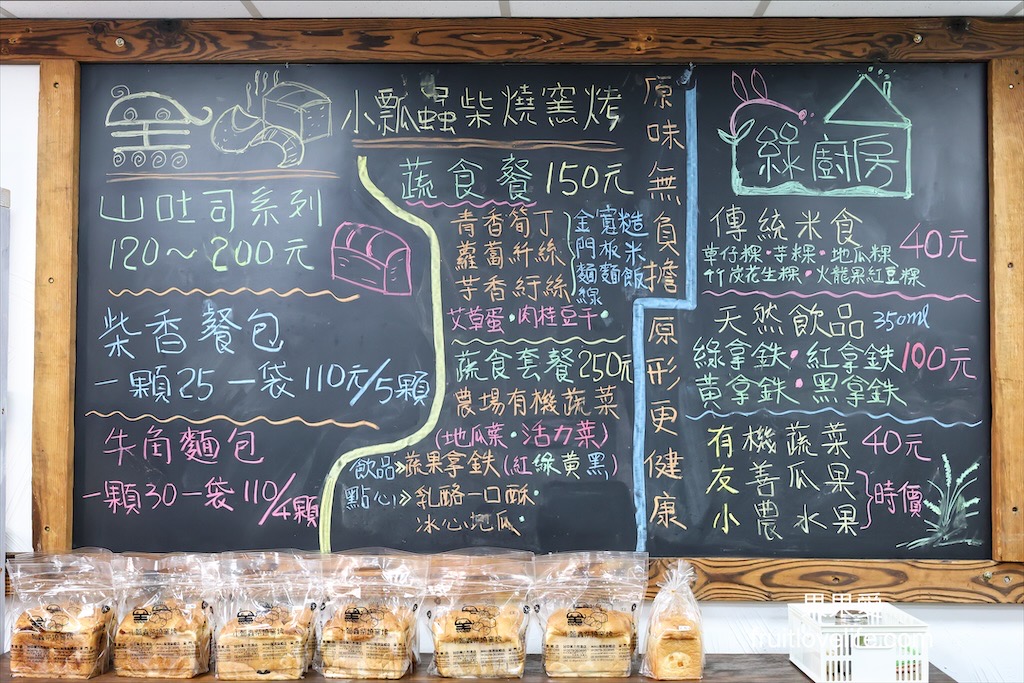 小瓢蟲柴燒窯烤
山吐司系列
120～200元
柴香餐包
一顆25 一袋110元/5顆
牛角麵包
一顆30 一袋110/4顆
蔬食餐 150元
青香筍丁
蘿蔔纤絲
芋香紆絲
金門麵線
糙米飯
艾草蛋·肉桂豆干·
蔬食套餐250元
農場有機蔬菜
(地瓜葉·活力菜)
飲品»蔬果拿鐵(紅綠黃黑)
點心»乳酪一口酥·
冰心地瓜·
原味無負擔
原形更健康
綠廚房
傳統米食 40元
車仔粿·芋粿·地瓜粿
竹炭花生粿·火龍果紅豆粿
天然飲品 350ml
綠拿鐵·紅拿鐵 100元
黃拿鐵·黑拿鐵
有機蔬菜 40元
友善瓜果
小農水果
時價
果果愛